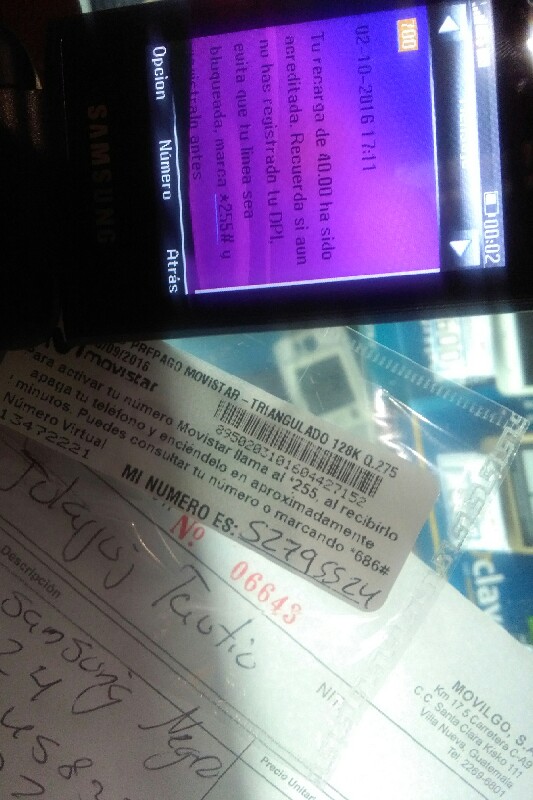 00:02
700
02-10-2016 17:11
Tu recarga de 40.00 ha sido
acreditada. Recuerda si aun
no has registrado tu DPI,
evita que tu linea sea
bloqueada, marca *255# y
antes
Opcion Número Atrás
SAMSUNG
PREPAGO MOVISTAR - TRIANGULADO 128K Q.275
/09/2016
movistar
8950203101604427152
Para activar tu número Movistar llama al *255, al recibirlo
apaga tu teléfono y enciéndelo en aproximadamente
minutos. Puedes consultar tu número o marcando *686#
Número Virtual
13472221
MI NUMERO ES: 52795524
Nº 06643
NIT
Descripción
Samsung Negro
24
Precio Unitar
MOVILGO, S.A
Km 17.5 Carretera C-A9
C.C. Santa Clara Kisko 111
Villa Nueva, Guatemala
Tel. 2269-6801
clav